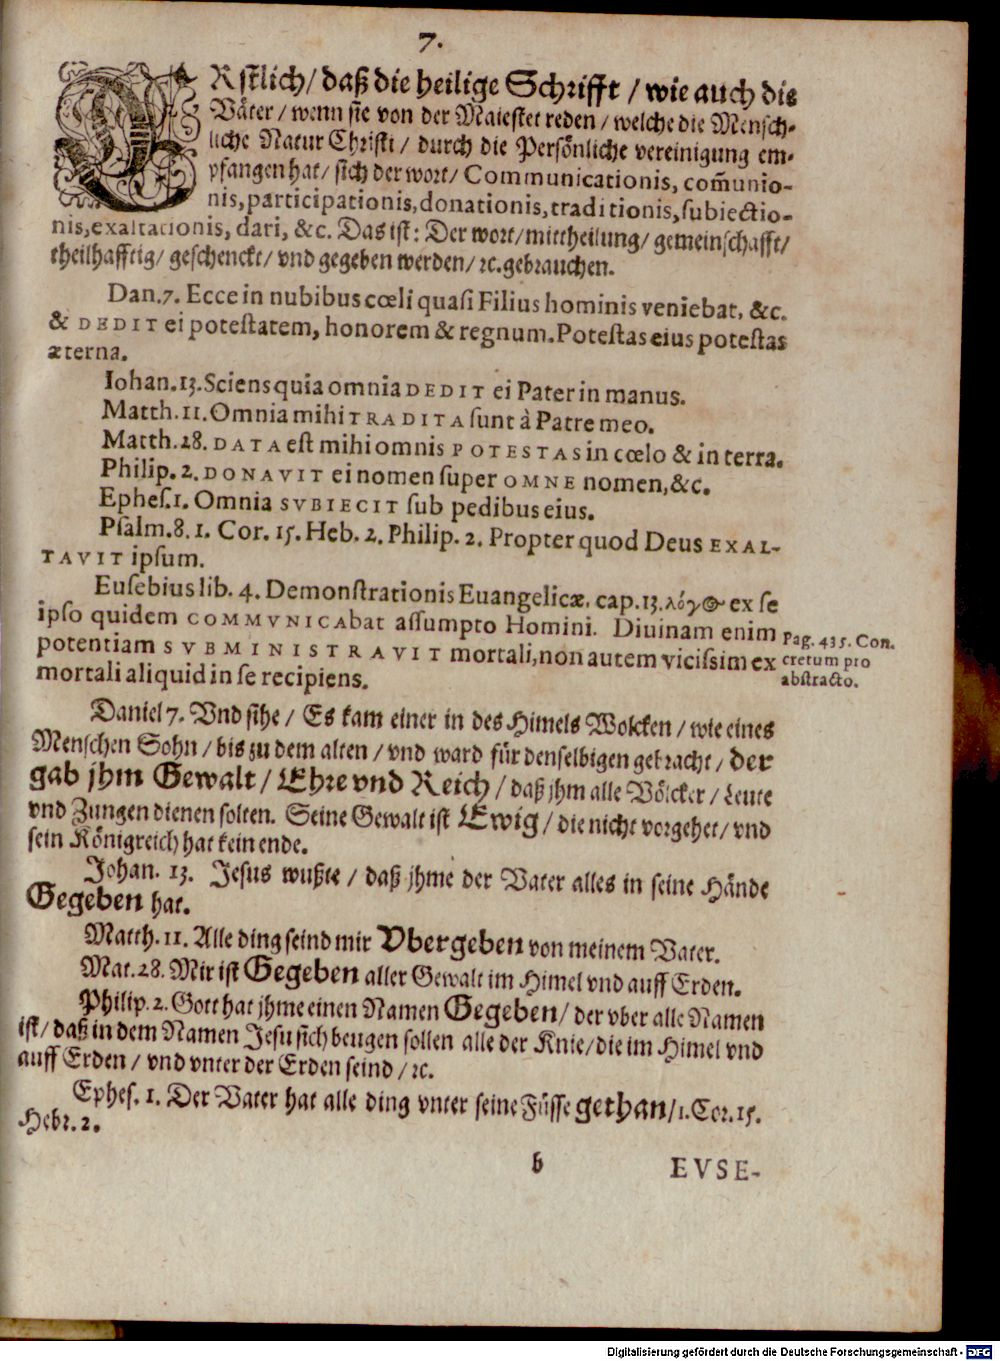 7.
ERstlich/ daß die heilige Schrifft / wie auch die
Väter / wenn sie von der Maiestet reden / welche die Mensch-
liche Natur Christi / durch die Persönliche vereinigung em-
pfangen hat/ sich der wort/ Communicationis, com̃unio-
nis, participationis, donationis, traditionis, subiectio-
nis, exaltationis, dari, &c. Das ist: Der wort/ mittheilung/ gemeinschafft/
theilhafftig/ geschenckt/ vnd gegeben werden/ ꝛc. gebrauchen.
Dan. 7. Ecce in nubibus cœli quasi Filius hominis veniebat, &c.
& DEDIT ei potestatem, honorem & regnum. Potestas eius potestas
æterna.
Iohan. 13. Sciens quia omnia DEDIT ei Pater in manus.
Matth. 11. Omnia mihi TRADITA sunt à Patre meo.
Matth. 28. DATA est mihi omnis POTESTAS in cœlo & in terra.
Philip. 2. DONAVIT ei nomen super OMNE nomen, &c.
Ephes. 1. Omnia SVBIECIT sub pedibus eius.
Psalm. 8. 1. Cor. 15. Heb. 2. Philip. 2. Propter quod Deus EXAL-
TAVIT ipsum.
Eusebius lib. 4. Demonstrationis Euangelicæ. cap. 13. λόγος ex se
ipso quidem COMMVNICAbat assumpto Homini. Diuinam enim
potentiam SVBMINISTRAVIT mortali, non autem vicissim ex
mortali aliquid in se recipiens.
Pag. 435. Con.
cretum pro
abstracto.
Daniel 7. Vnd sihe / Es kam einer in des Himels Wolcken / wie eines
Menschen Sohn / bis zu dem alten / vnd ward für denselbigen gebracht / der
gab jhm Gewalt / Ehre vnd Reich / daß jhm alle Völcker / Leute
vnd Zungen dienen solten. Seine Gewalt ist Ewig / die nicht vorgehet / vnd
sein Königreich hat kein ende.
Johan. 13. Jesus wußte / daß jhme der Vater alles in seine Hände
Gegeben hat.
Matth. 11. Alle ding seind mir Vbergeben von meinem Vater.
Mat. 28. Mir ist Gegeben aller Gewalt im Himel vnd auff Erden.
Philip. 2. Gott hat jhme einen Namen Gegeben / der vber alle Namen
ist / daß in dem Namen Jesu sich beugen sollen alle der Knie / die im Himel vnd
auff Erden / vnd vnter der Erden seind / ꝛc.
Ephes. 1. Der Vater hat alle ding vnter seine Füsse gethan / 1. Cor. 15.
Hebr. 2.
b
EVSE-
Digitalisierung gefördert durch die Deutsche Forschungsgemeinschaft - DFG